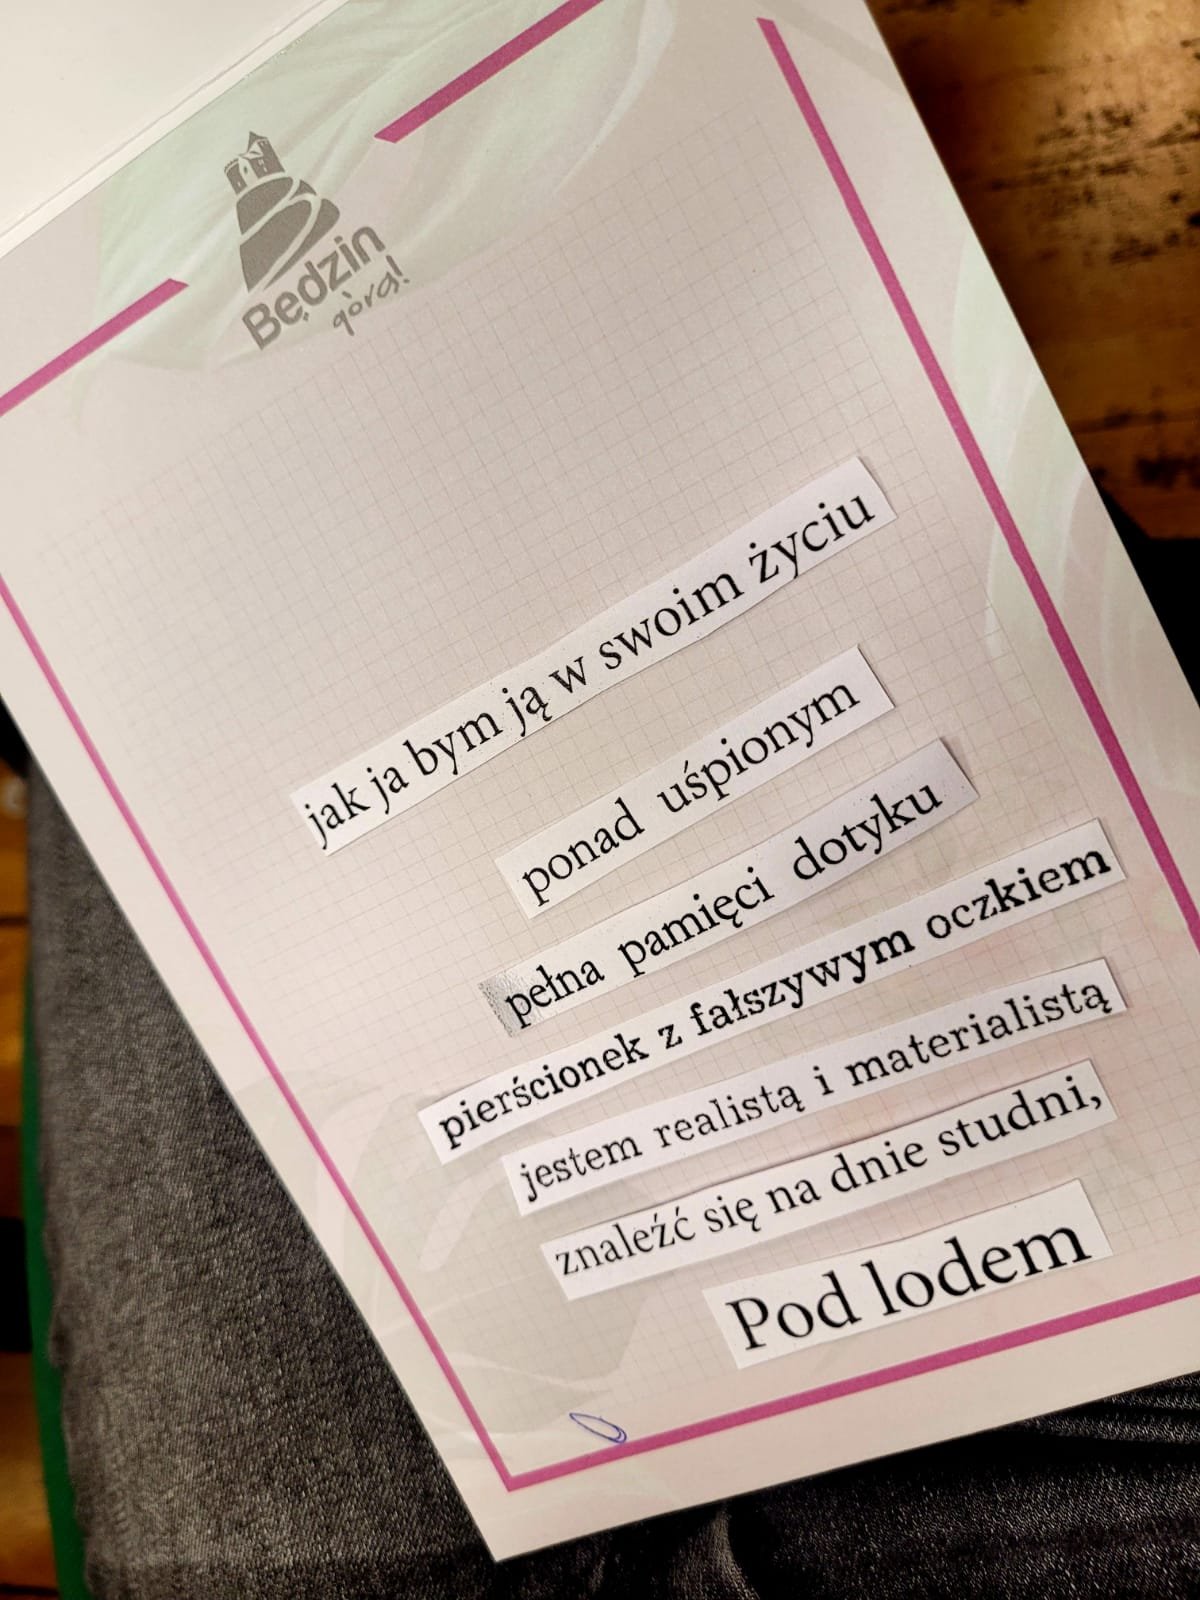 Będzin
górą!
jak ja bym ją w swoim życiu
ponad uśpionym
pełna pamięci dotyku
pierścionek z fałszywym oczkiem
jestem realistą i materialistą
znaleźć się na dnie studni,
Pod lodem